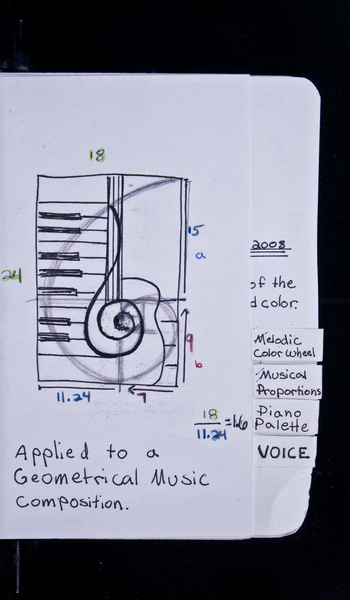 18
15
a
24
9
b
11.24
7
18
11.24
=1.6
Applied to a
Geometrical Music
Composition.
2008
of the
d color.
Melodic
Color Wheel
Musical
Proportions
Piano
Palette
VOICE